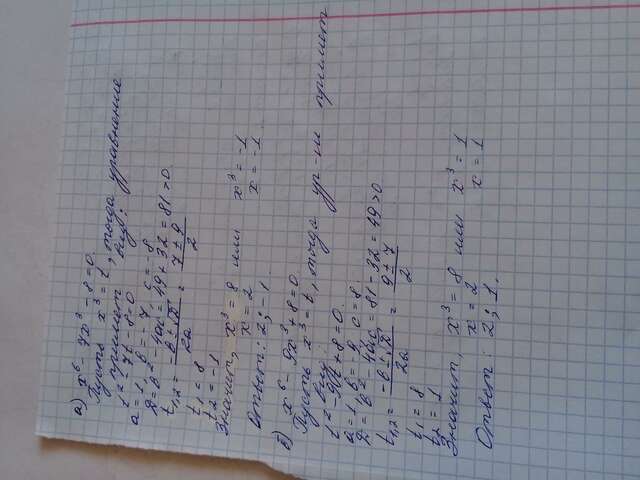 а) x⁶ - 7x³ - 8 = 0
Пусть x³ = t, тогда уравнение
примет вид:
t² - 7t - 8 = 0
a = 1, b = -7, c = -8
D = b² - 4ac = 49 + 32 = 81 > 0
t₁,₂ = (-b ± √D)/2a = (7 ± 9)/2
t₁ = 8
t₂ = -1
Значит, x³ = 8 или x³ = -1
x = 2 x = -1
Ответ: 2; -1.
б) x⁶ - 9x³ + 8 = 0
Пусть x³ = t, тогда ур-ие примет
вид:
t² - 9t + 8 = 0.
a = 1, b = -9, c = 8
D = b² - 4ac = 81 - 32 = 49 > 0
t₁,₂ = (-b ± √D)/2a = (9 ± 7)/2
t₁ = 8
t₂ = 1
Значит, x³ = 8 или x³ = 1
x = 2 x = 1
Ответ: 2; 1.